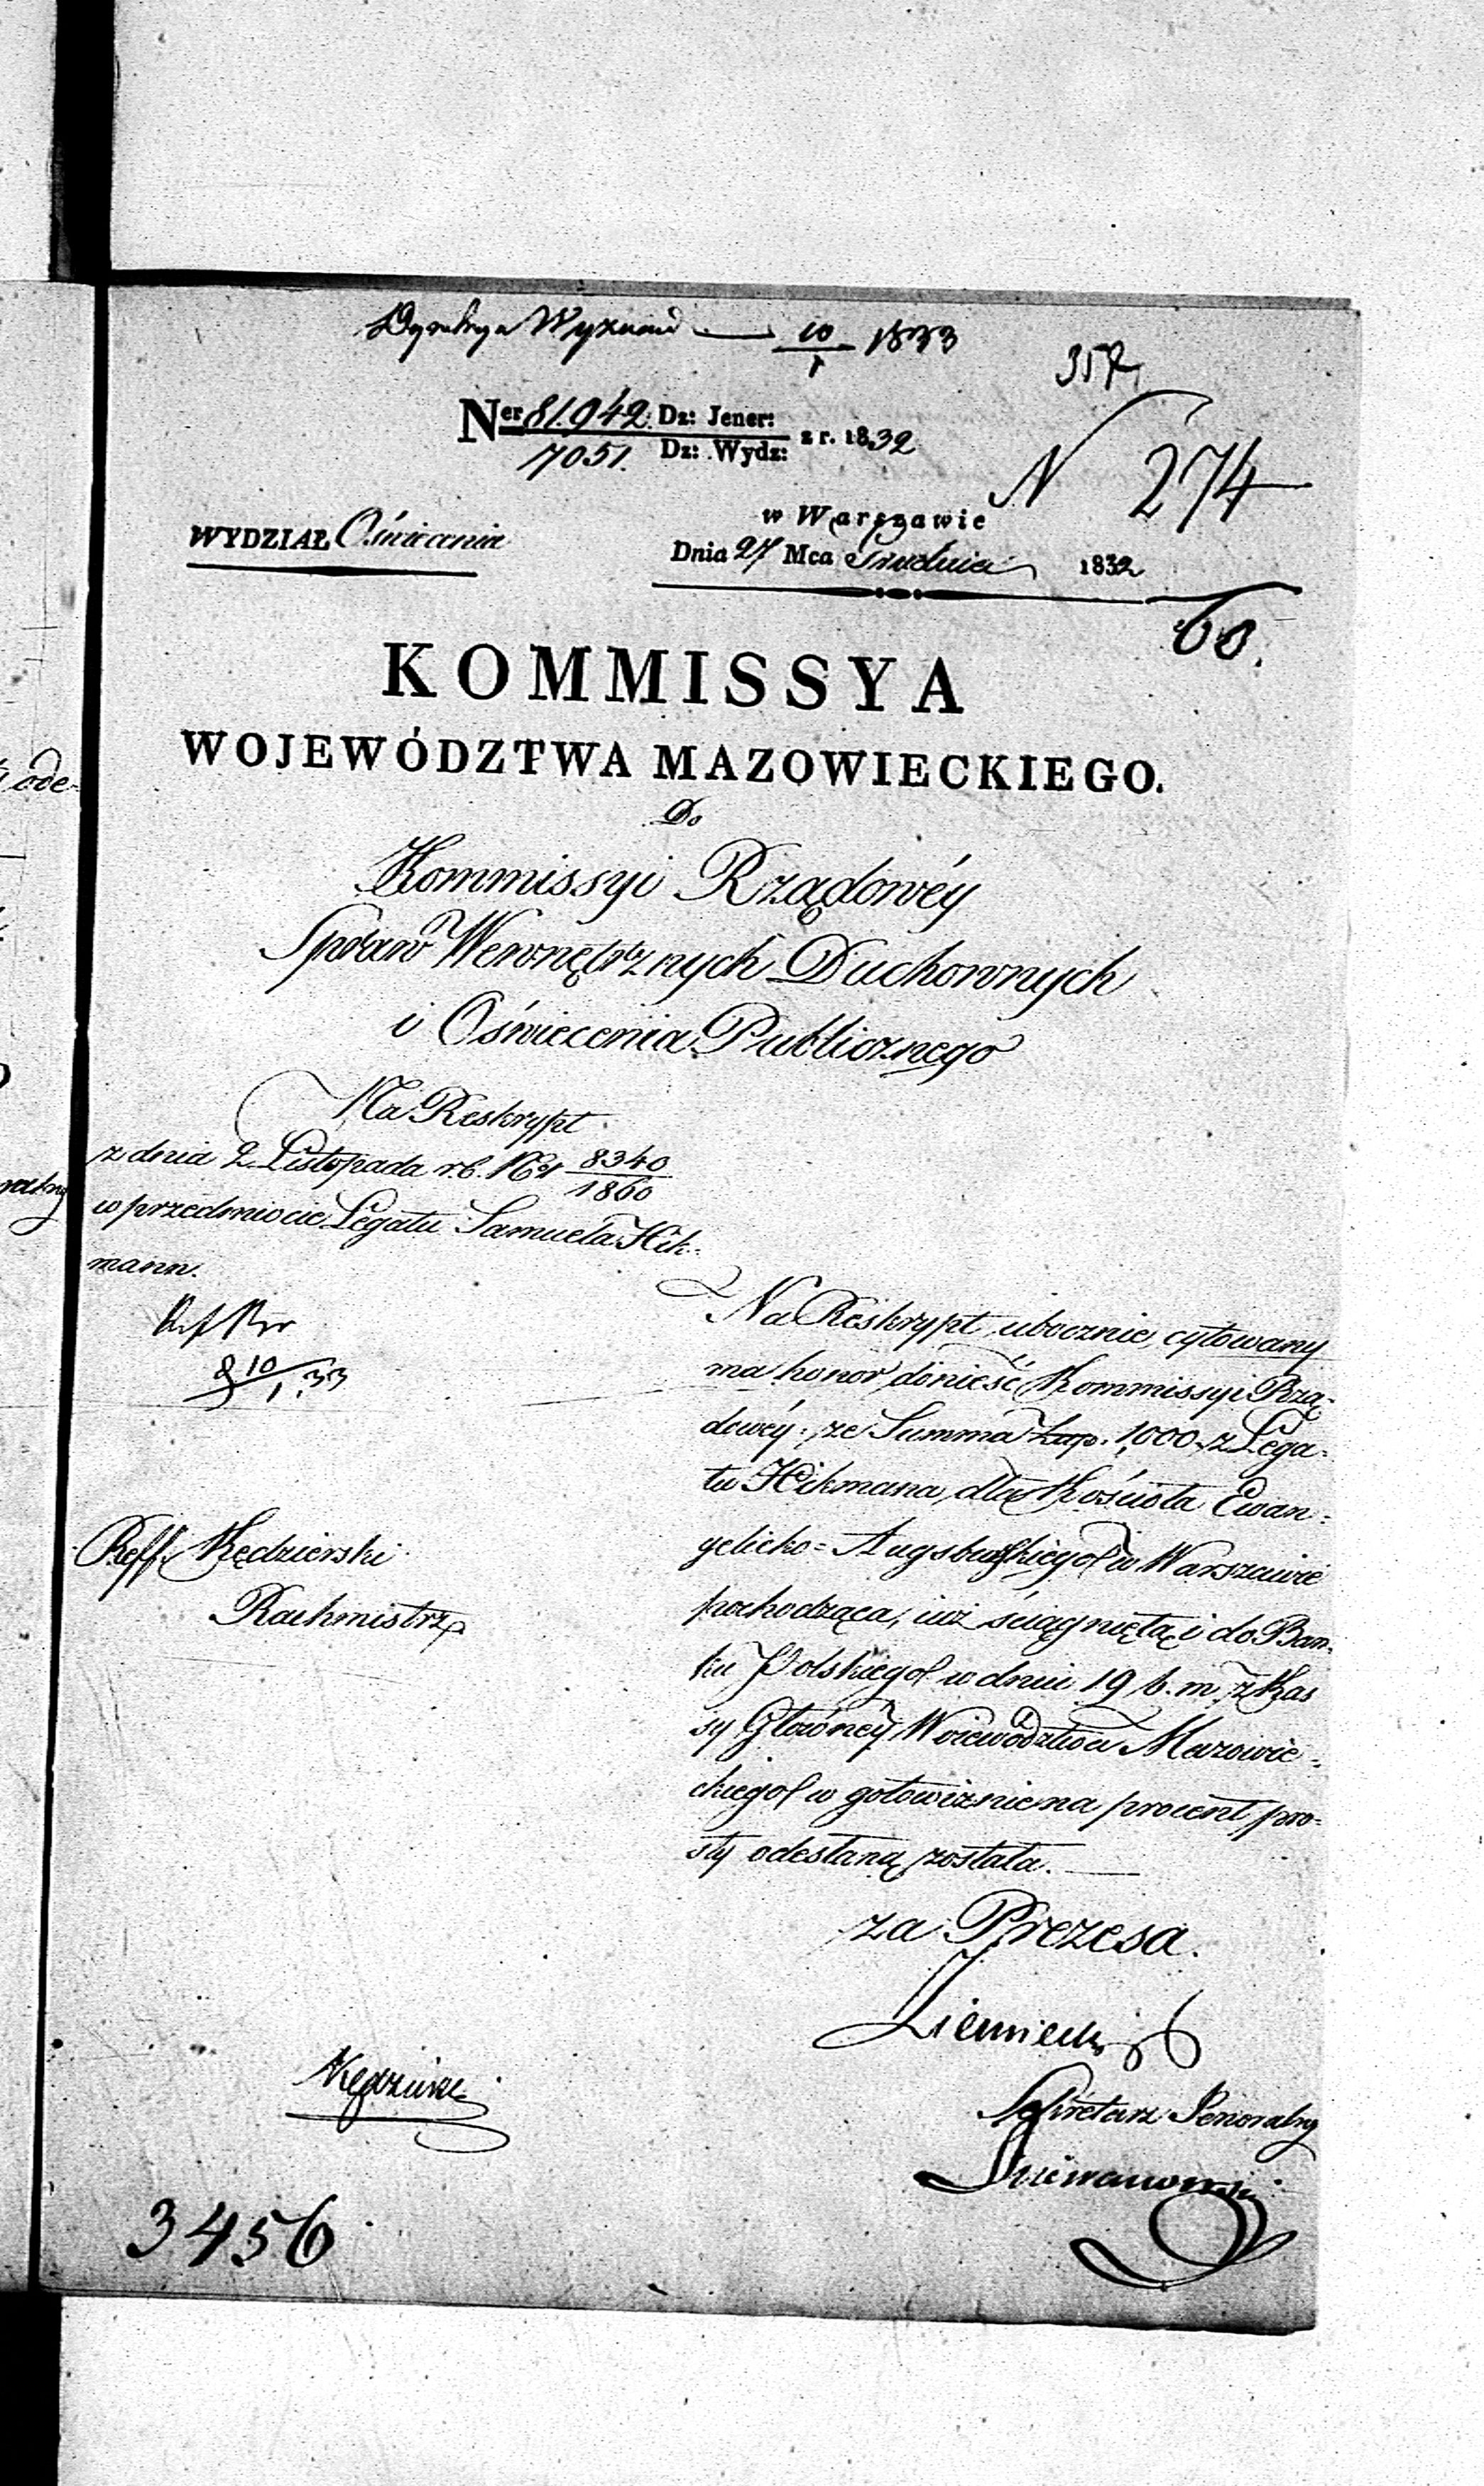 Dyrekcya Wyznań — 10/1 1833
357
Ner 81.942. Dz: Jener: z r. 1832
7051. Dz: Wydz:
N 274
w Warszawie
WYDZIAŁ Oświecenia
Dnia 27 Mca Grudnia 1832
60.
KOMMISSYA
WOJEWÓDZTWA MAZOWIECKIEGO.
Do
Kommissyi Rządowéy
Spraw Wewnętrznych Duchownych
i Oświecenia Publicznego
Na Reskrypt
z dnia 2 Listopada r.b. Nr 8340/1860
w przedmiocie Legatu Samuela Hik-
mann.
10/1 33
Na Reskrypt ubocznie cytowany
ma honor donieść Kommissyi Rzą-
dowéy, że Summa złp. 1000 z Lega-
tu Hikmana, dla Kościoła Ewan-
gelicko-Augsburskiego w Warszawie
pochodząca, iuż ściągniętą i do Ban-
ku Polskiego w dniu 19 b. m. z Kas
sy Głównéy Woiewództwa Mazowie-
ckiego w gotowiźnie na procent pro-
sty odesłaną została.
Reff. Kędzierski
Rachmistrz
za Prezesa.
Sekretarz Jeneralny
3456
ode-